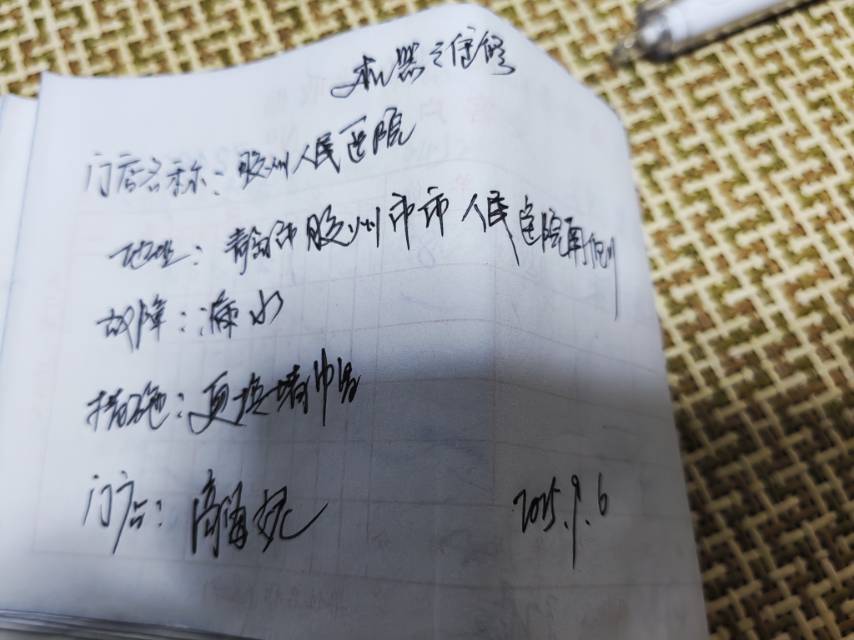 机器维修
门店名称：胶州人民医院
地址：青岛市胶州市市人民医院南侧
故障：漏水
措施：更换堵帽
门店：高海妮
2025.9.6